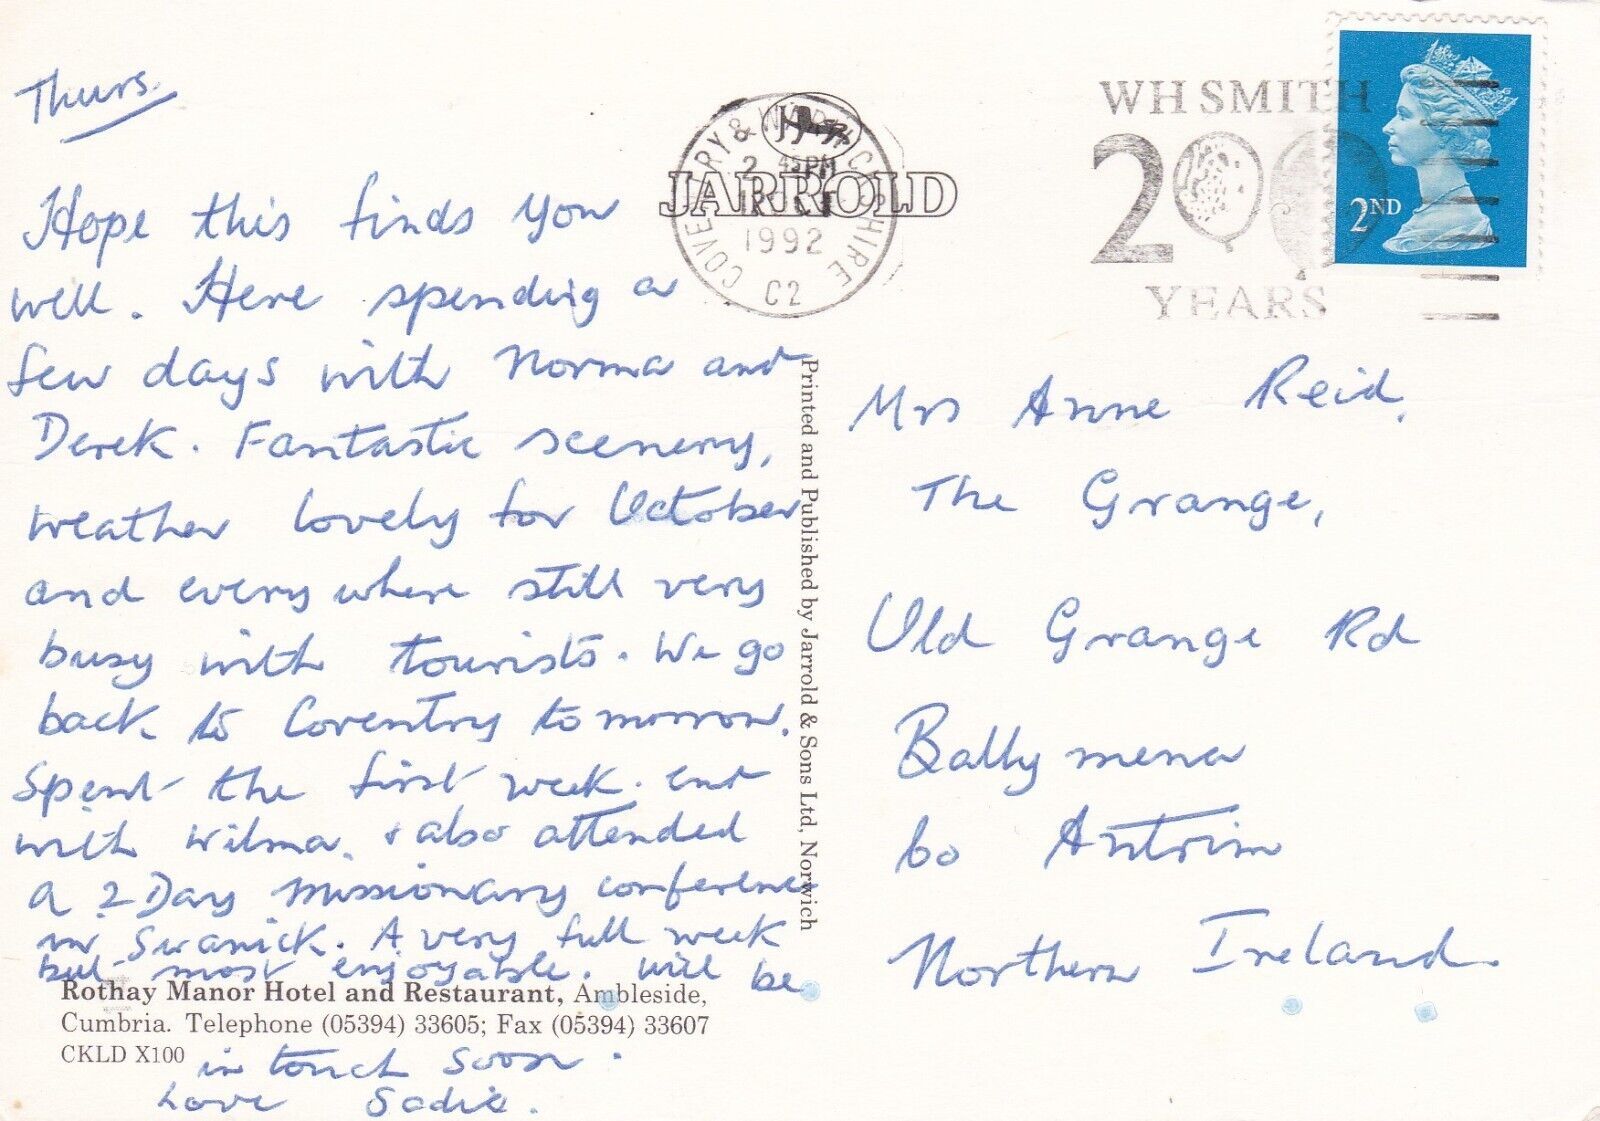 Thurs.
Hope this finds you
well. Here spending a
few days with Norma and
Derek. Fantastic scenery,
weather lovely for October
and everywhere still very
busy with tourists. We go
back to Coventry tomorrow.
Spent the first week end
with Wilma. & also attended
a 2 Day missionary conference
in Swanick. A very full week
but most enjoyable. Will be
in touch soon.
Love Sadie.
Rothay Manor Hotel and Restaurant, Ambleside,
Cumbria. Telephone (05394) 33605; Fax (05394) 33607
CKLD X100
JARROLD
COVENTRY & WARWICKSHIRE
2 45PM
OCT
1992
C2
Printed and Published by Jarrold & Sons Ltd, Norwich
WH SMITH
200
YEARS
2ND
Mrs Anne Reid,
The Grange,
Old Grange Rd
Ballymena
Co Antrim
Northern Ireland.